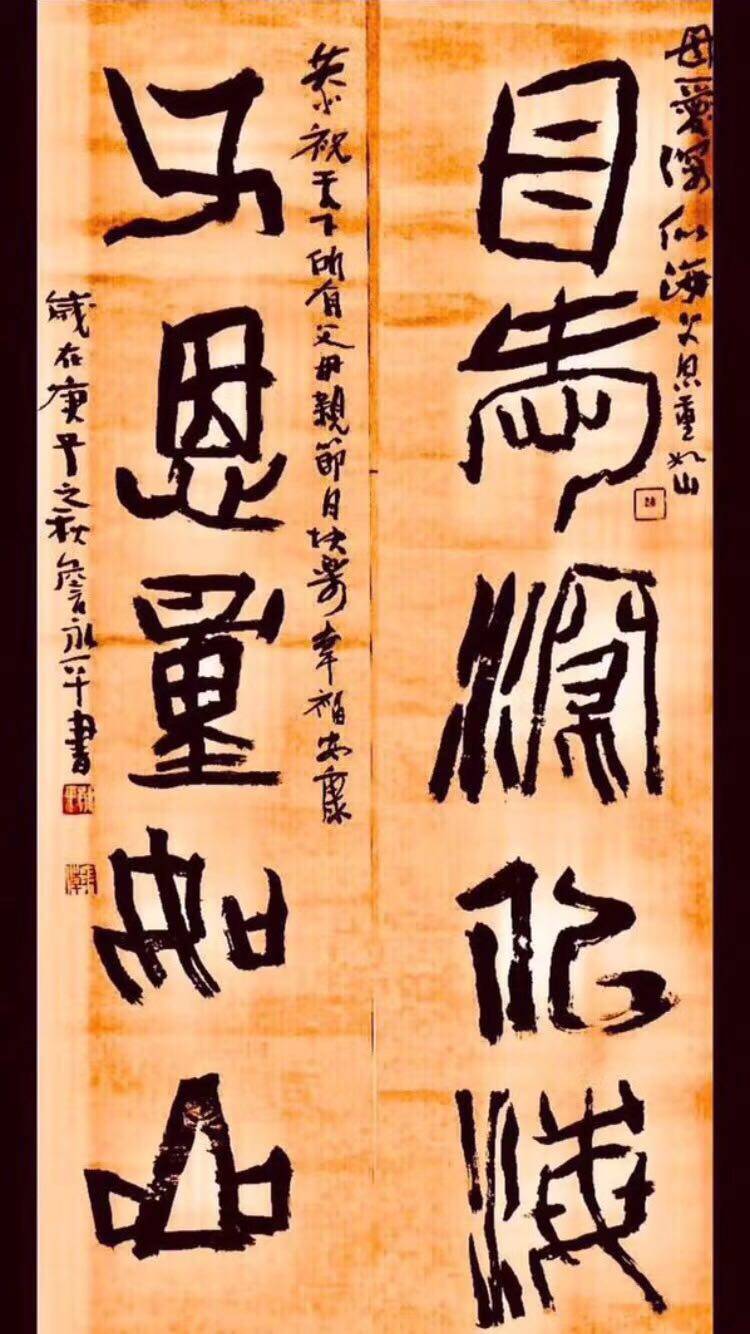 母愛深似海父恩重如山
母愛深似海
父恩重如山
恭祝天下所有父母親節日快樂幸福安康
歲在庚子之秋詹永平書